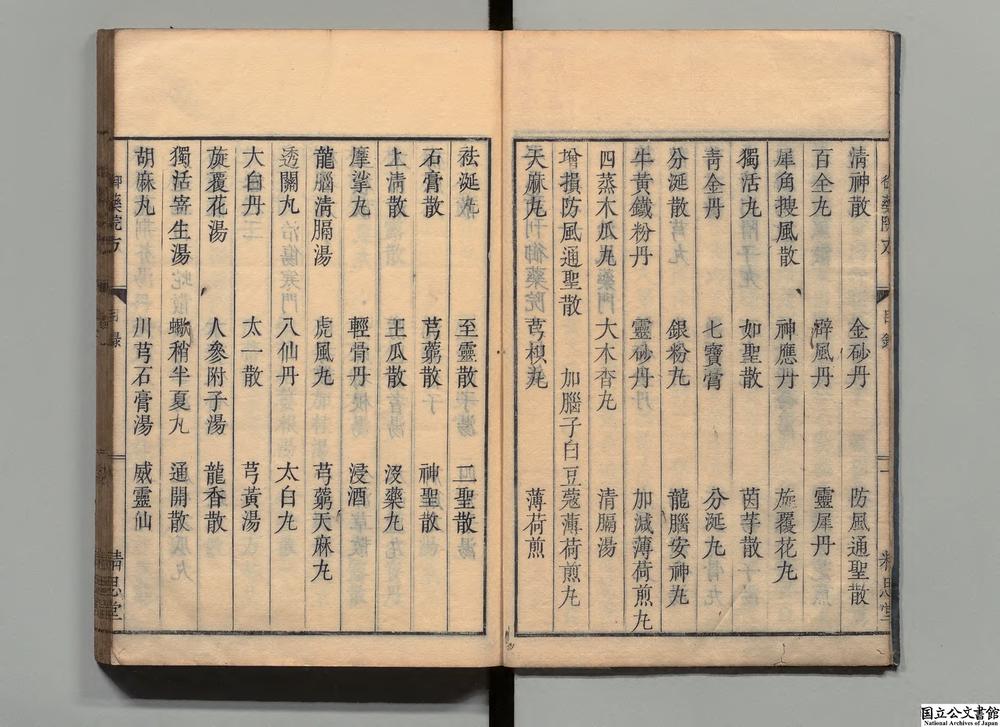 清神散 金砂丹 防風通聖散
百全九 辟風丹 靈犀丹
犀角搜風散 神應丹 旋覆花九
獨活九 如聖散 茵芋散
青金丹 七寶膏 分涎九
分涎散 銀粉九 龍腦安神九
牛黃鐵粉丹 靈砂丹 加減薄荷煎九
四蒸木瓜九 大木香九 清膈湯
增損防風通聖散 加腦子白豆蔻薄荷煎九
天麻九 芎棋九 薄荷煎
御藥院方 目錄 一 精思堂
祛涎九 至靈散 二聖散
石膏散 芎藭散 神聖散
上清散 王瓜散 沒藥九
摩挲九 輕骨丹 浸酒
龍腦清膈湯 虎風九 芎藭天麻九
透關九 八仙丹 太白九
大白丹 太一散 芎黃湯
旋覆花湯 人參附子湯 龍香散
獨活寄生湯 蠍稍半夏九 通開散
胡麻九 川芎石膏湯 威靈仙
御藥院方 目錄 精思堂
国立公文書館
National Archives of Japan